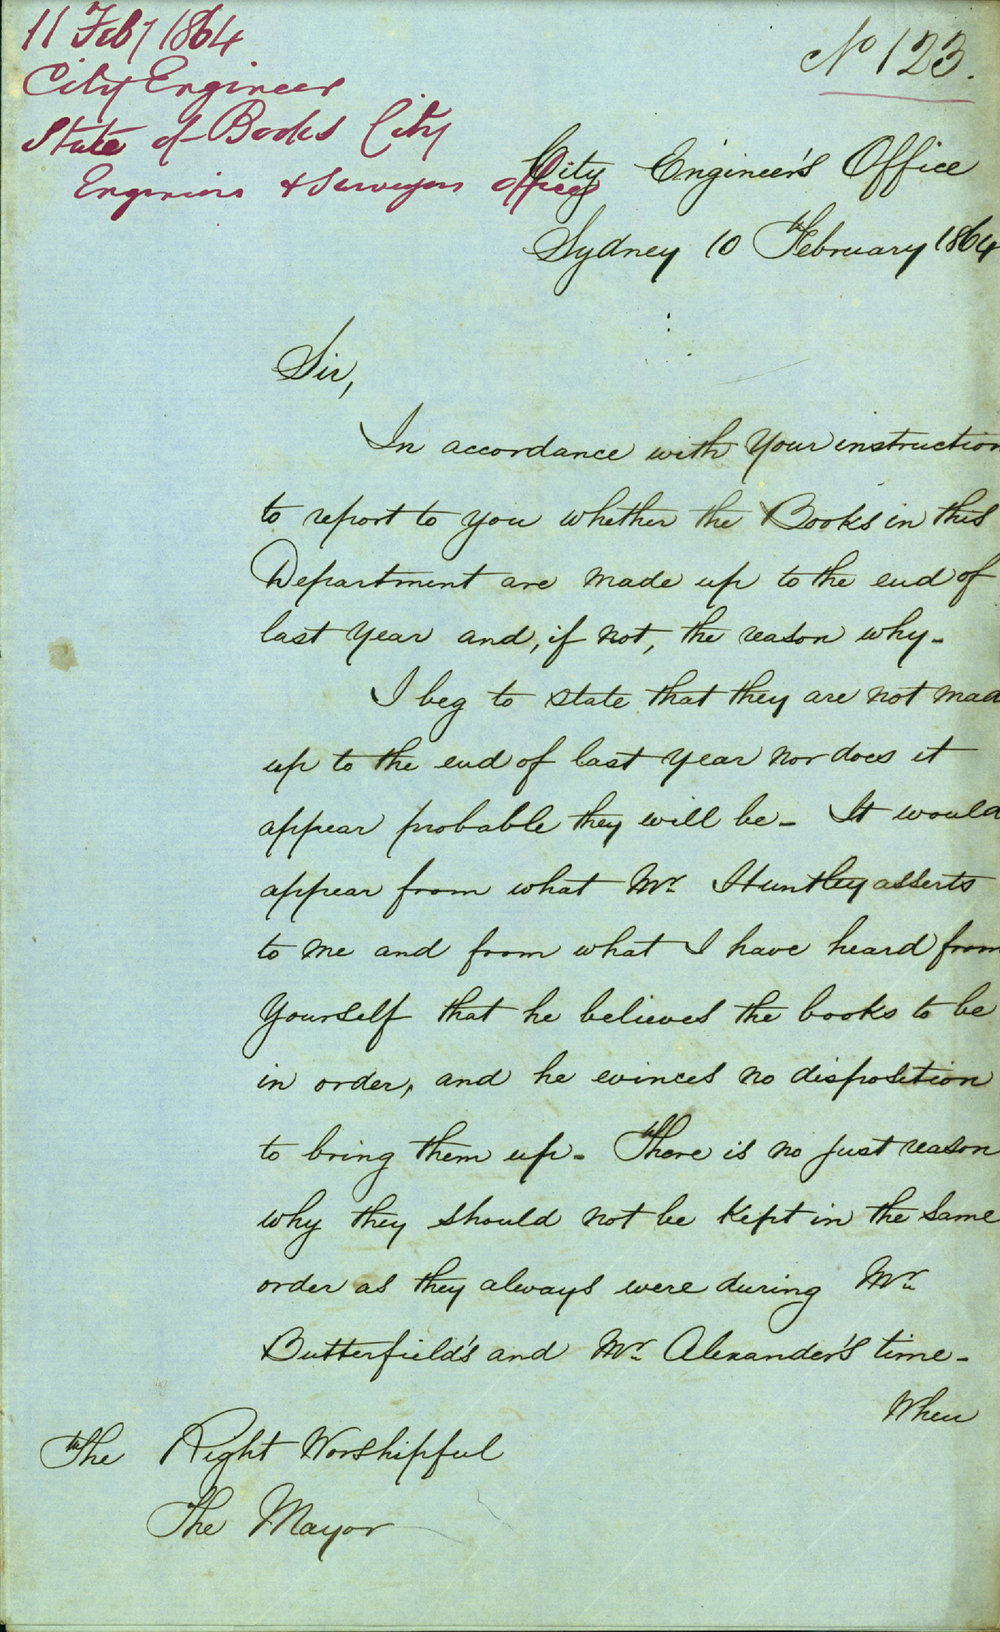 11 Feby 1864
City Engineer
State of Books City
Engineers & Surveyors offices
No 123.
City Engineer's Office
Sydney 10 February 1864
Sir,
In accordance with Your instruction
to report to you whether the Books in this
Department are made up to the end of
last year and, if not, the reason why-
I beg to state that they are not mad
up to the end of last year nor does it
appear probable they will be- It would
appear from what Mr. Huntley asserts
to me and from what I have heard from
Yourself that he believes the books to be
in order, and he evinces no disposition
to bring them up- There is no just reason
why they should not be kept in the same
order as they always were during Mr.
Butterfield's and Mr. Alexander's time-
When
The Right Worshipful
The Mayor